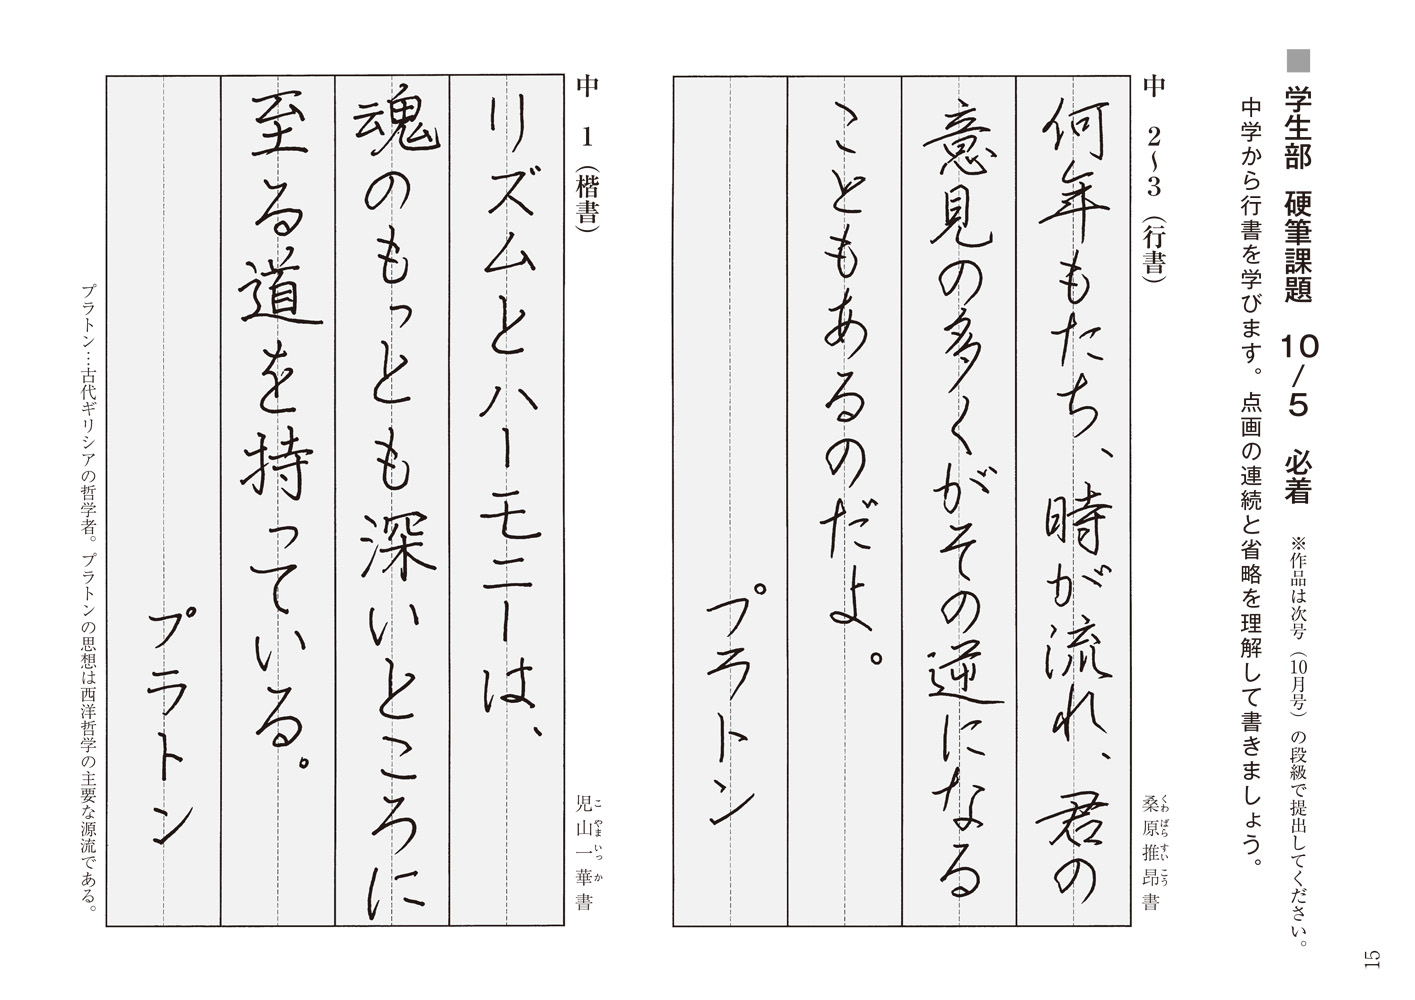 ■学生部 硬筆課題 10/5 必着 ※作品は次号（10月号）の段級で提出してください。
中学から行書を学びます。点画の連続と省略を理解して書きましょう。
中 2〜3（行書）
桑原推昂書
くわ ばら すい こう
何年もたち、時が流れ、君の
意見の多くがその逆になる
こともあるのだよ。
プラトン
中 1（楷書）
児山一華書
こ やま いっ か
リズムとハーモニーは、
魂のもっとも深いところに
至る道を持っている。
プラトン
プラトン…古代ギリシアの哲学者。プラトンの思想は西洋哲学の主要な源流である。
15